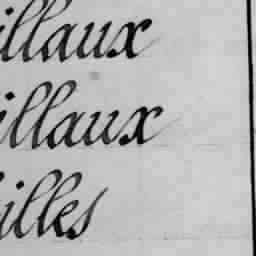 illaux
illaux
illes